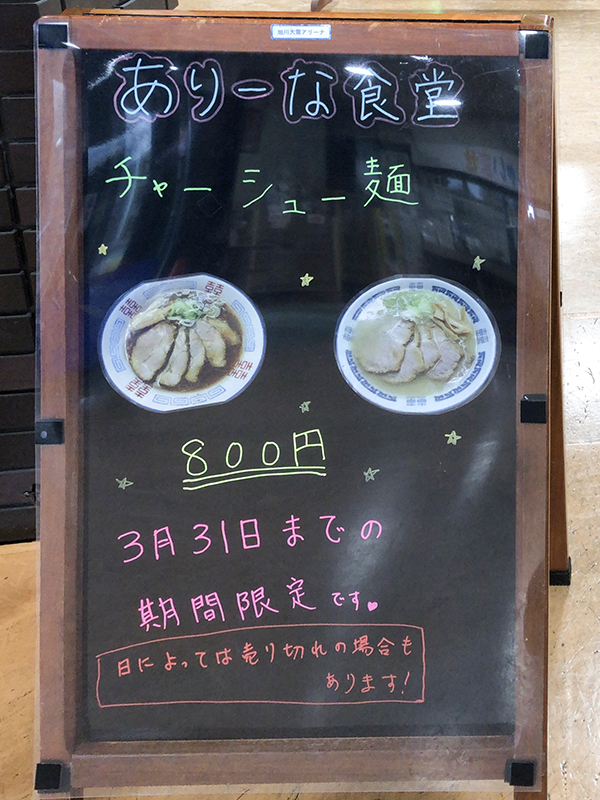 旭川大雪アリーナ
ありーな食堂
チャーシュー麺
800円
3月31日までの
期間限定です。
日によっては売り切れの場合も
あります!